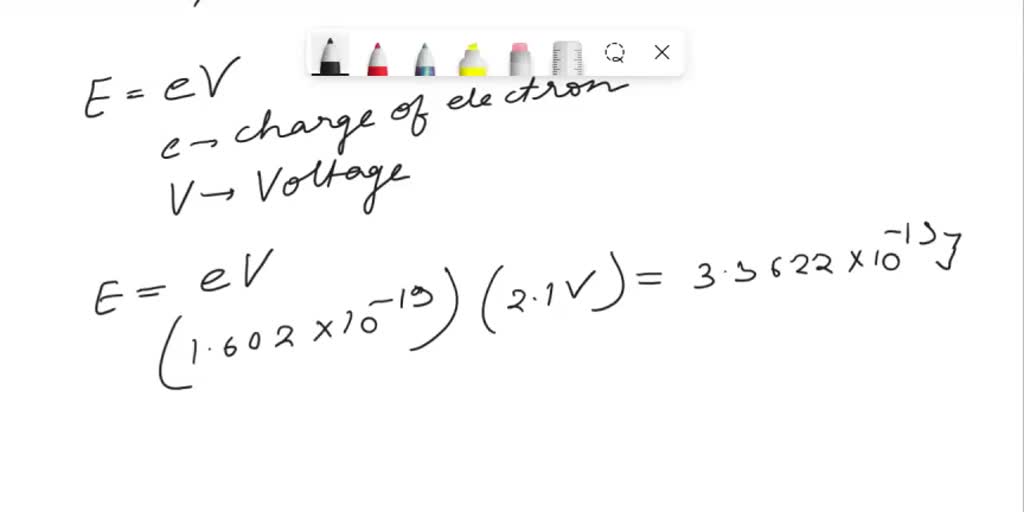 E = eV
e → charge of electron
V → Voltage
E = eV
(1.602 × 10⁻¹⁹) (2.1V) = 3.3622 × 10⁻¹⁹ J